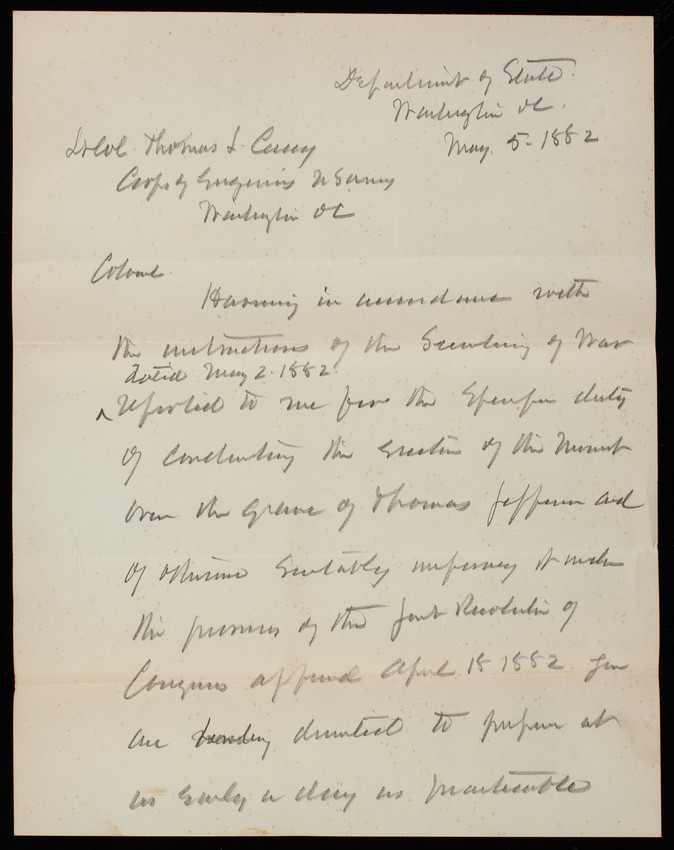 Department of State.
Washington DC.
May 5 - 1882
Lt Col. Thomas L. Casey
Corps of Engineers U S Army
Washington DC
Colonel.
Having in accordance with
the instructions of the Secretary of War
dated May 2. 1882
^ reported to me for the specific duty
of conducting the erection of the Monument
over the grave of Thomas Jefferson and
of otherwise suitably improving it under
the provisions of the Joint Resolution of
Congress approved April 18 1882 you
are hereby directed to prepare at
as early a day as practicable